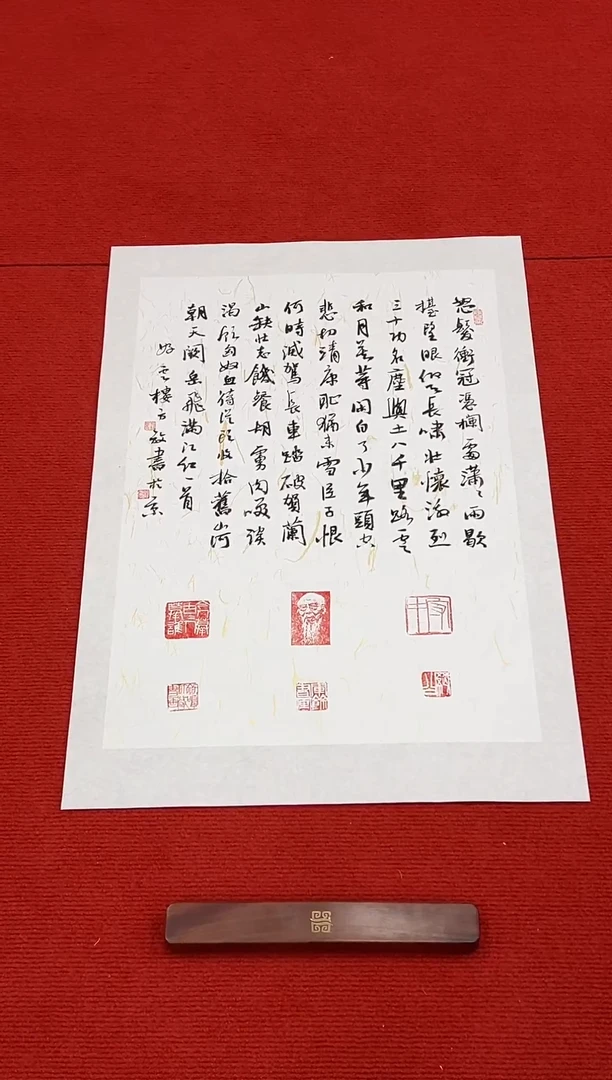 怒髮衝冠憑欄處瀟〻雨歇
擡望眼仰天長嘯壯懷激烈
三十功名塵與土八千里路雲
和月莫等閑白了少年頭空
悲切靖康恥猶未雪臣子恨
何時滅駕長車踏破賀蘭
山缺壯志饑餐胡虜肉笑談
渴飲匈奴血待從頭收拾舊山河
朝天闕岳飛滿江紅一首
雲樓書於京